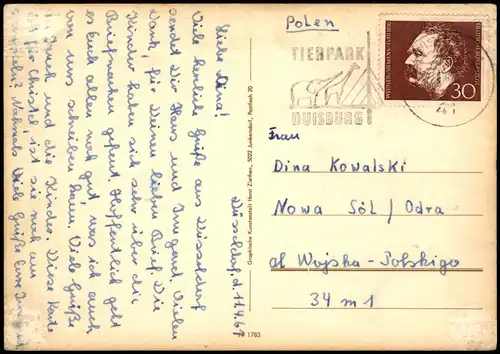 Düsseldorf, d. 11.4.67
Liebe Dina!
Viele herzliche Grüße aus Düsseldorf
sendet Dir Hans und Irmgard. Vielen
Dank, für Deinen lieben Brief. Die
Kinder haben sich sehr über die
Briefmarken gefreut. Hoffentlich geht
es Euch allen noch gut was ich
von uns schreiben kann. Viele Grüße
Druck und die Kinder. Diese Karte
ist für Christel, ist sie noch am
Nochmals Viele Grüße Eure
Graphische Kunstanstalt Horst Ziethen, 5022 Junkersdorf, Postfach 20
1783
Polen
TIERPARK
DUISBURG
WERNER VON SIEMENS
30
41
Frau
Dina Kowalski
Nowa Sól / Odra
al Wojska-Polskigo
34 m 1